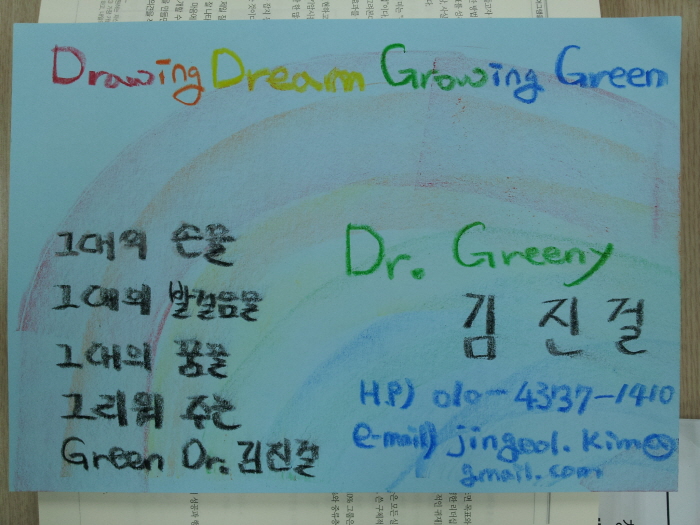 Drawing Dream Growing Green
그대의 손을
그대의 발걸음을
그대의 꿈을
그리워 주는
Green Dr. 김진걸
Dr. Greeny
김 진 걸
H.P) 010-4337-1410
e-mail) jingeol.kim@
gmail.com